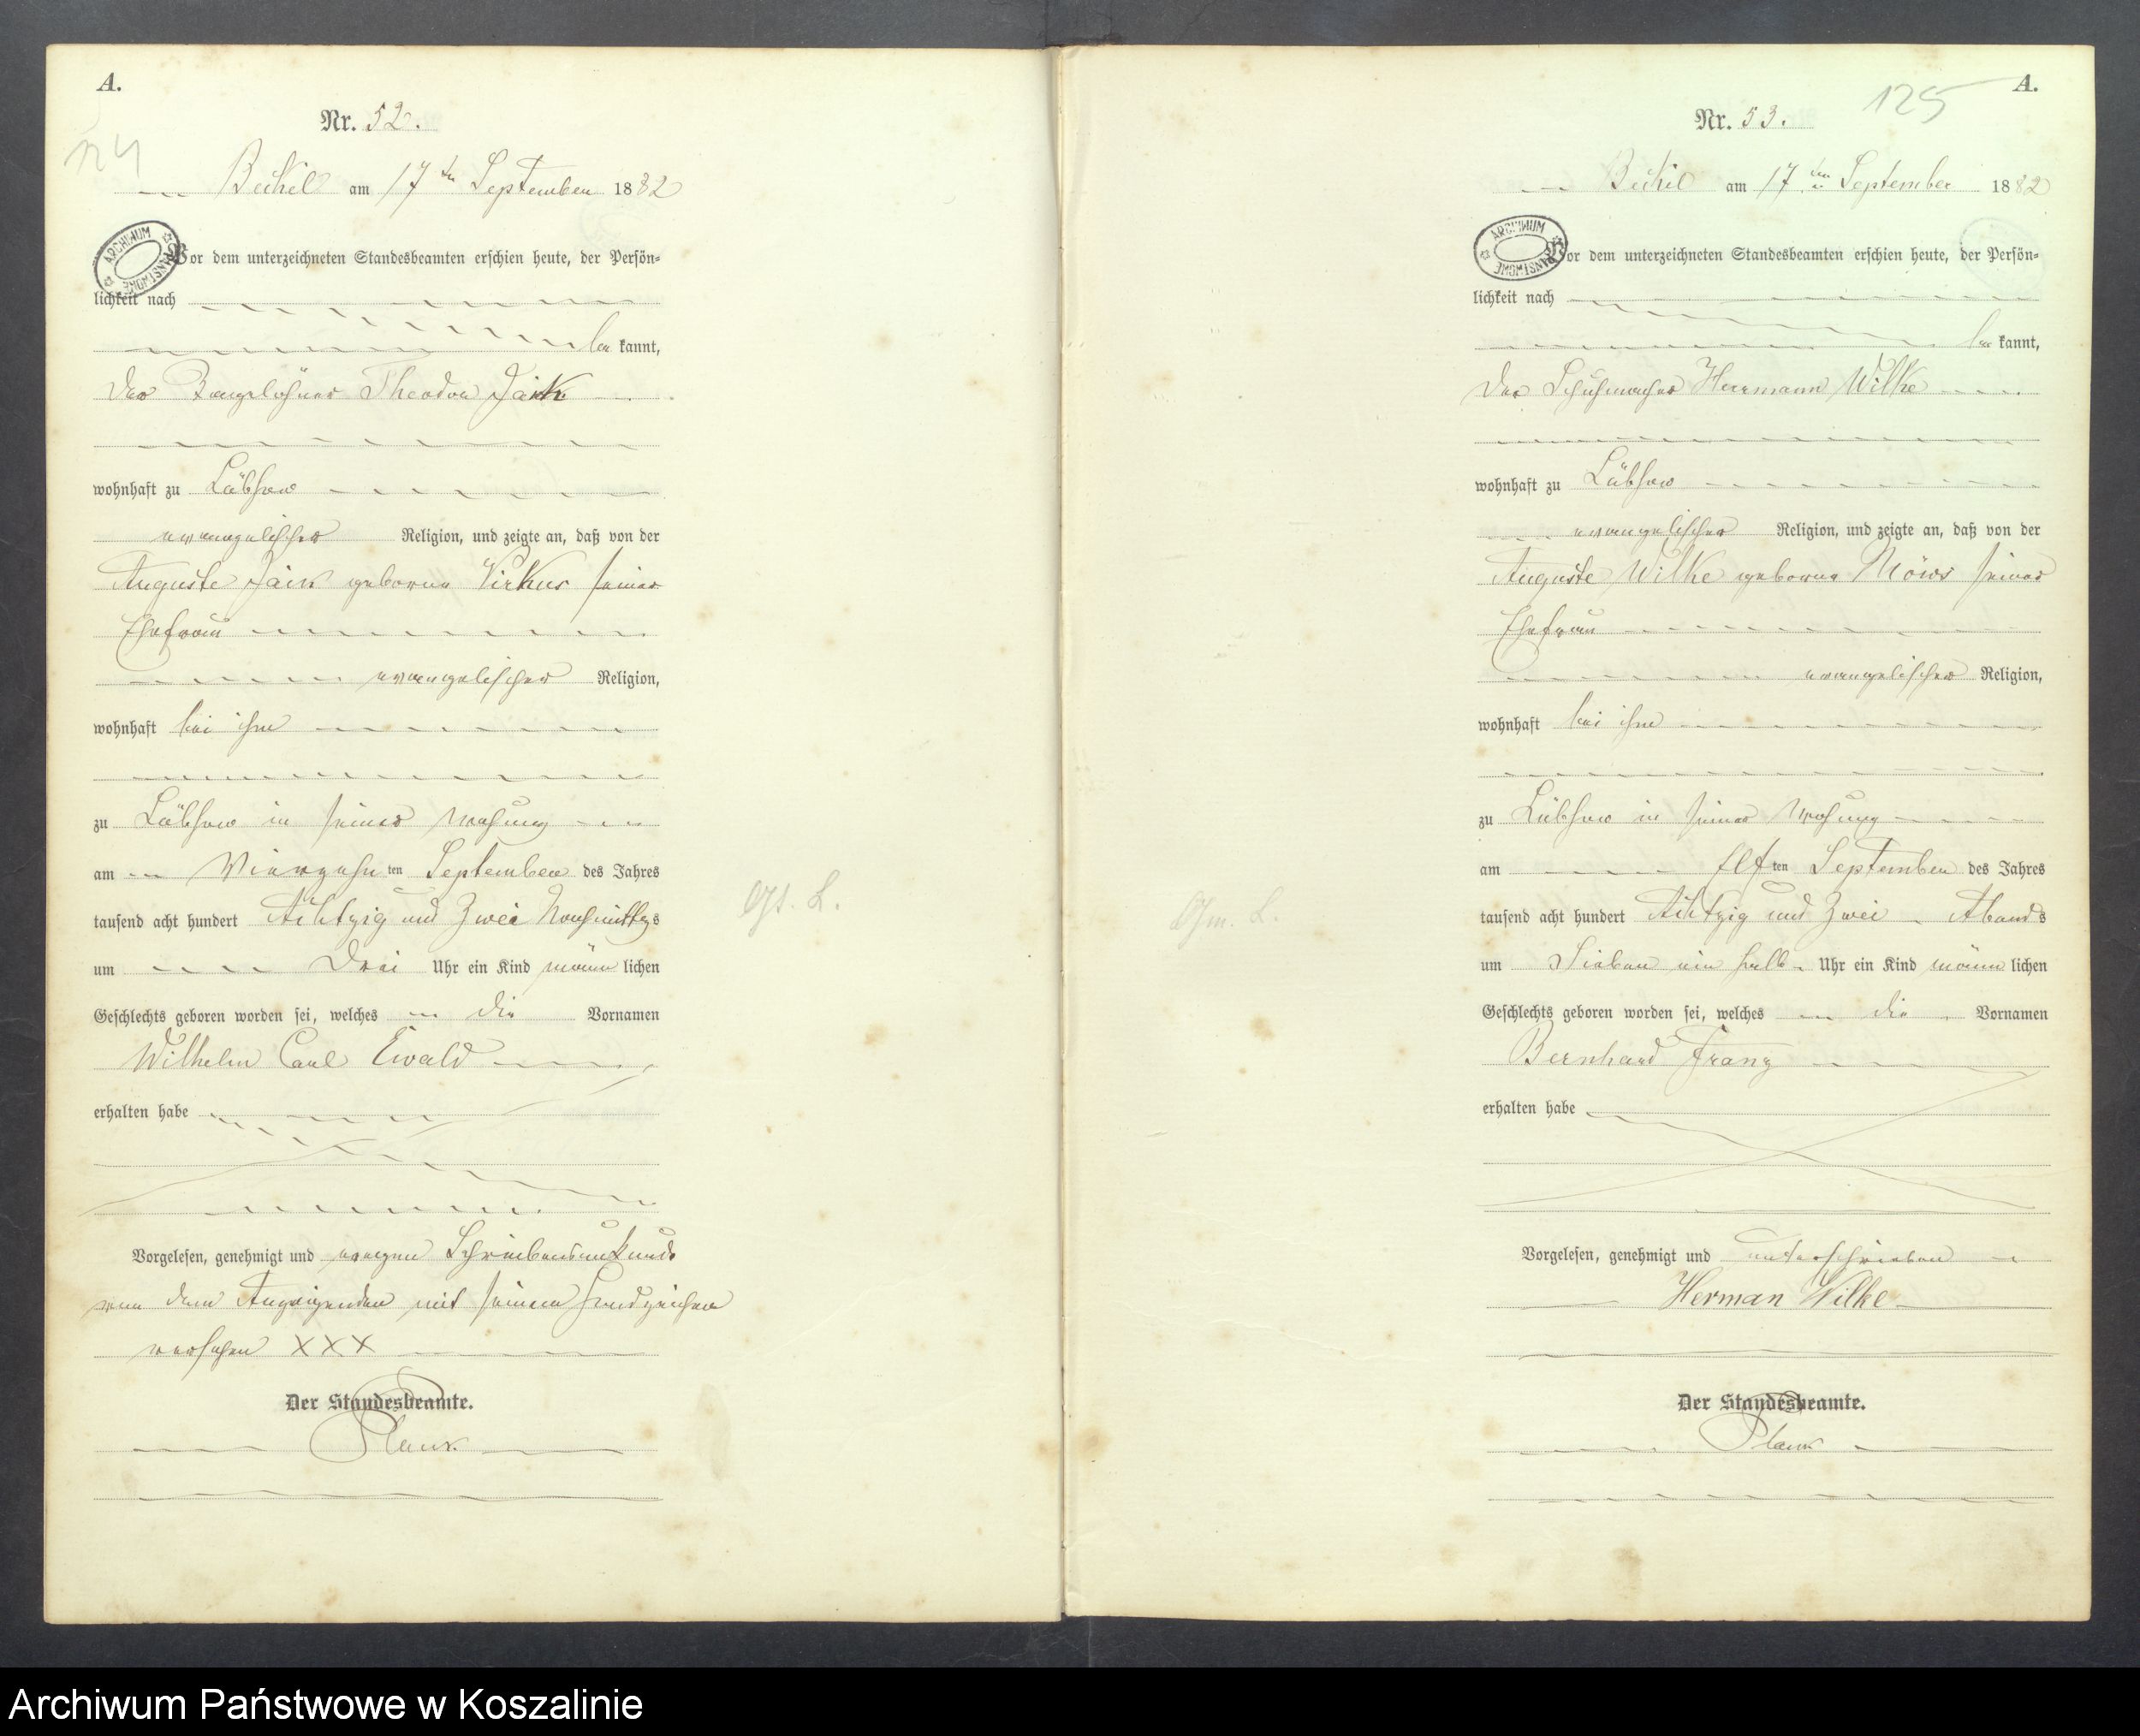 A.
Nr. 52.
124
Beckel am 17ten September 1882
ARCHIWUM PAŃSTWOWE
Vor dem unterzeichneten Standesbeamten erschien heute, der Persön-
lichkeit nach
be kannt,
der Theodor Jaik
wohnhaft zu Lübsow
evangelischer Religion, und zeigte an, daß von der
Auguste Jaik geborne Virkus seiner
Ehefrau
evangelischer Religion,
wohnhaft bei ihm
zu Lübsow in seiner Wohung
am Vierzehn ten September des Jahres
tausend acht hundert Achtzig und Zwei Nachmittags
um Drei Uhr ein Kind männ lichen
Geschlechts geboren worden sei, welches die Vornamen
Wilhelm Carl Ewald
erhalten habe
Vorgelesen, genehmigt und wegen Schreibensunkunde
von dem Anzeigenden mit seinem Handzeichen
versehen XXX
Der Standesbeamte.
Plank
A.
Nr. 53.
125
Beckel am 17ten September 1882
ARCHIWUM PAŃSTWOWE
Vor dem unterzeichneten Standesbeamten erschien heute, der Persön-
lichkeit nach
be kannt,
der Schuhmacher Herrmann Wilke
wohnhaft zu Lübsow
evangelischer Religion, und zeigte an, daß von der
Auguste Wilke geborne Möws seiner
Ehefrau
evangelischer Religion,
wohnhaft bei ihm
zu Lübsow in seiner Wohung
am Elf ten September des Jahres
tausend acht hundert Achtzig und Zwei Abends
um Sieben ein halb Uhr ein Kind männ lichen
Geschlechts geboren worden sei, welches die Vornamen
Bernhard Franz
erhalten habe
Vorgelesen, genehmigt und unterschrieben
Herman Wilke
Der Standesbeamte.
Plank
Archiwum Państwowe w Koszalinie